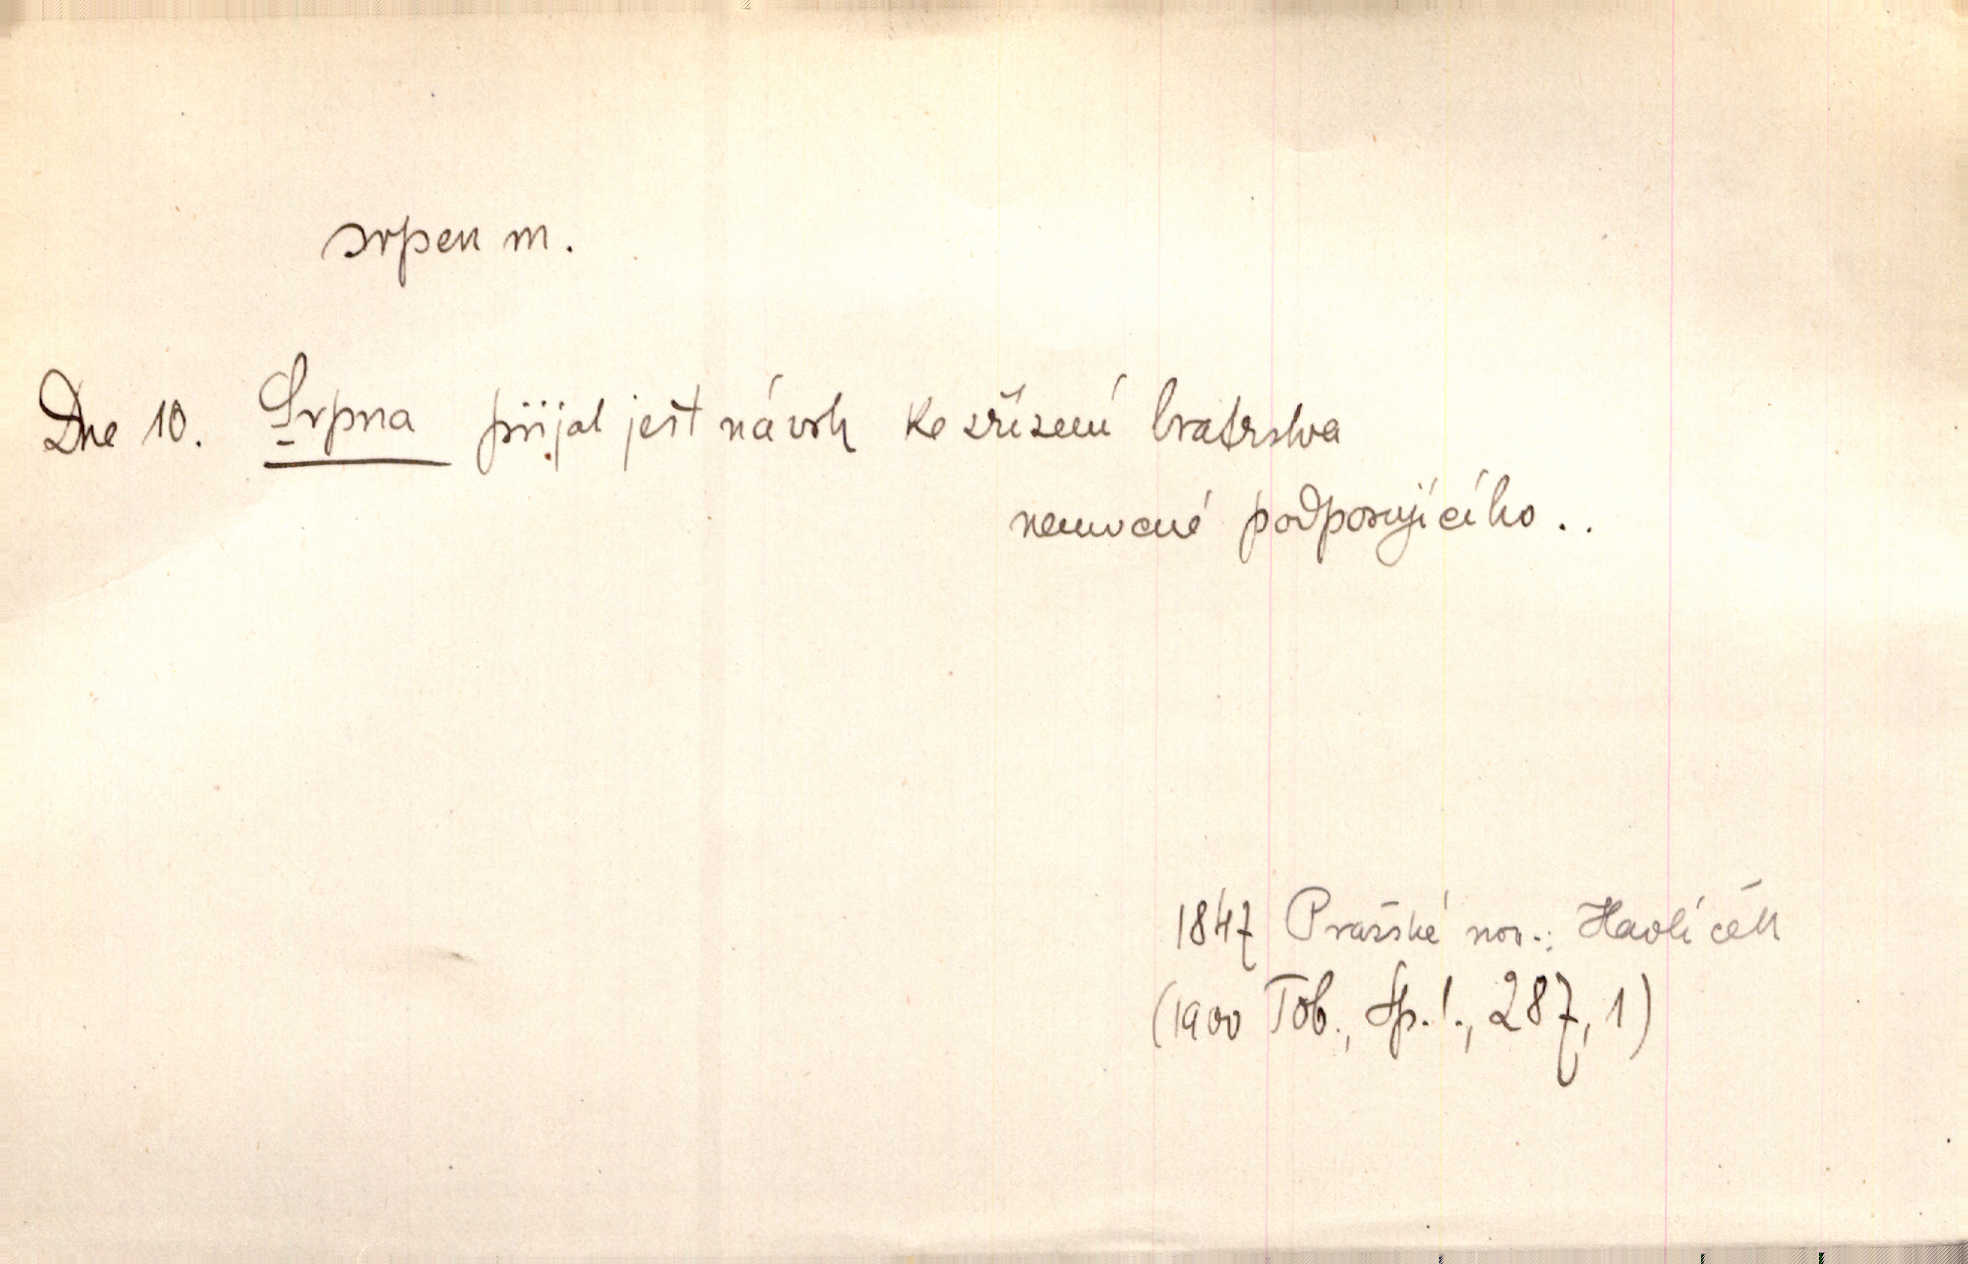 srpen m.
Dne 10. Srpna přijat jest návrh ke zřízení bratrstva
nemocné podporujícího..
1847 Pražské nov.: Havlíček
(1900 Tob., Sp. I., 287, 1)